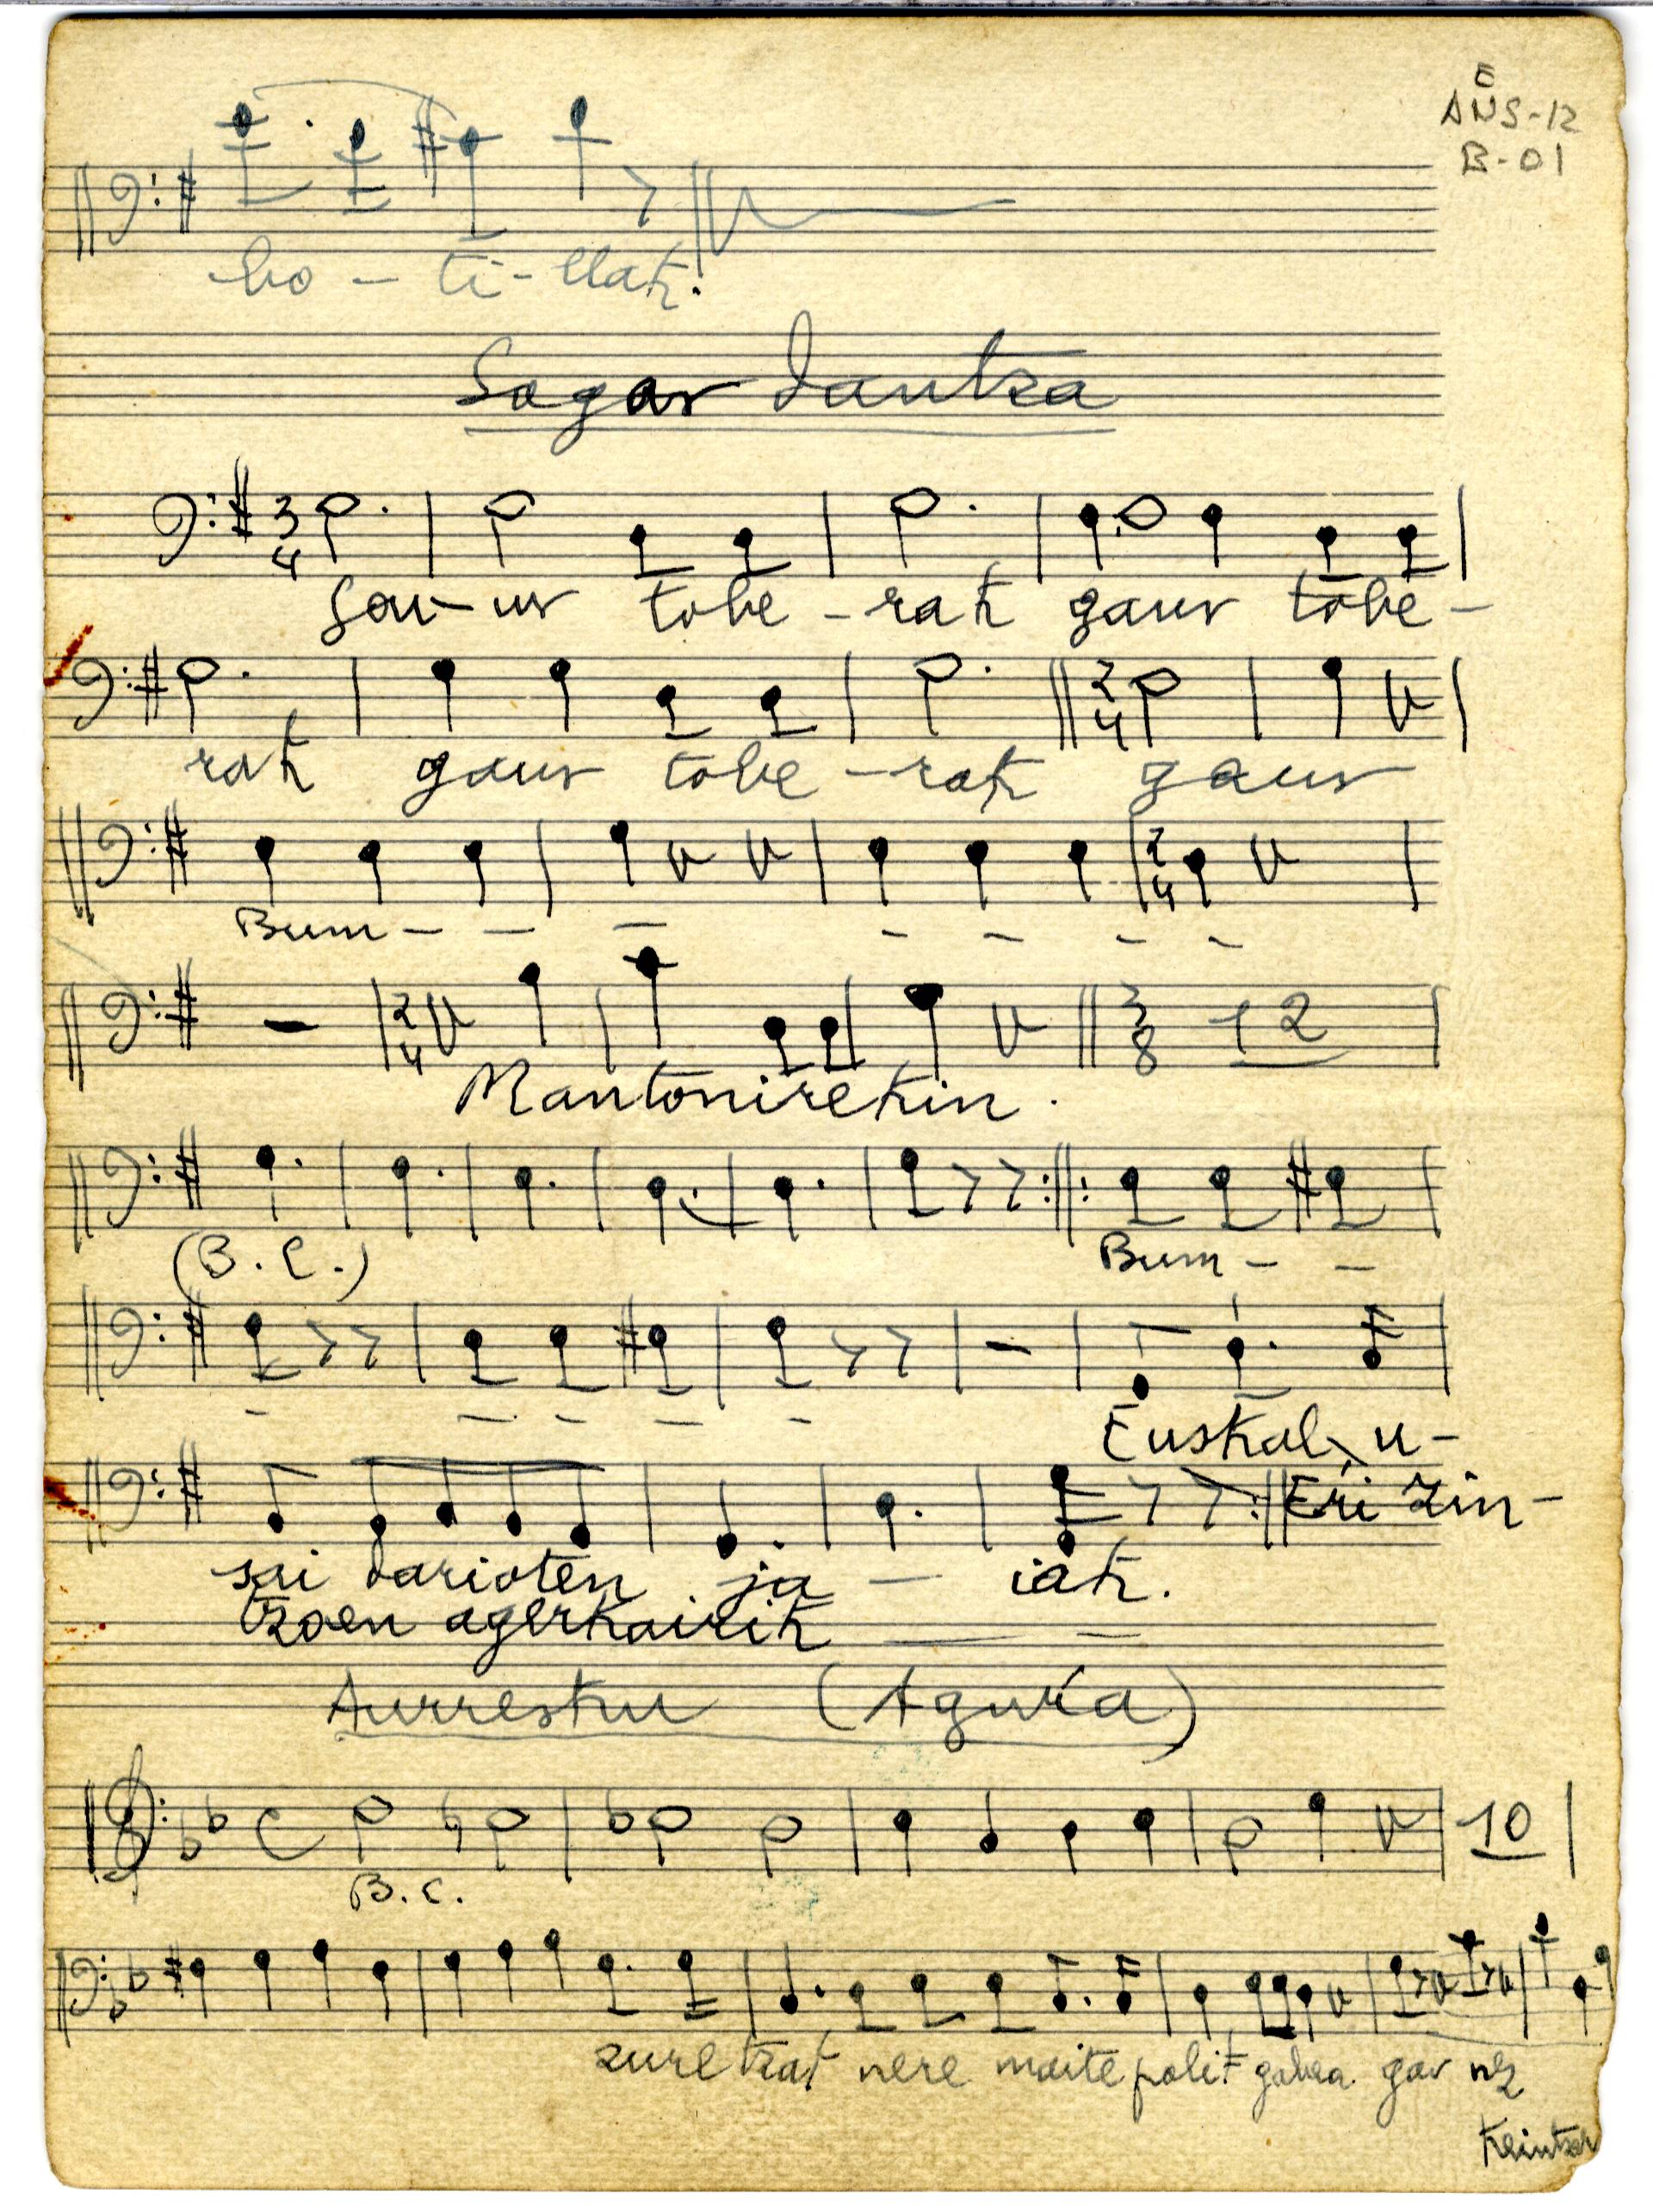 E
ANS-12
B-01
bo - ti - llak.
Sagar dantza
3/4
Gau - ur tobe - rak gaur tobe -
rak gaur tobe - rak gaur
2/4
Bum - - - - - - -
2/4
2/4 3/8 12
Mantonirekin.
(B. C.) Bum - -
- - - - -
Euskal u -
Eri zin -
sai darioten ja - iak.
tzoen agerkairik
Aurresku (Agura)
C 10
B. C.
zuretzat nere maite polit gabea gau